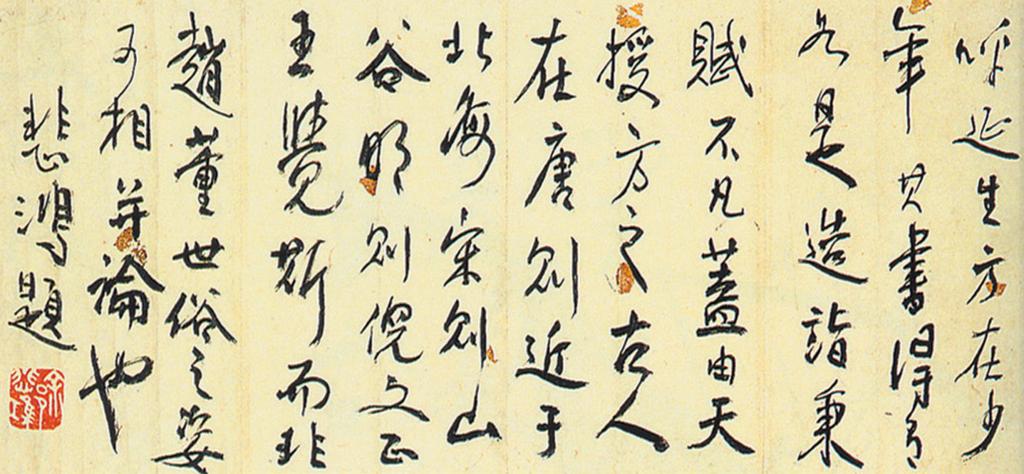 呼延生方在少
年其書得有
若是造詣秉
賦不凡蓋由天
授方之古人
在唐則近于
北海宋則山
谷明則倪文正
王覺斯而非
趙董世俗之姿
可相并論也
悲鴻題